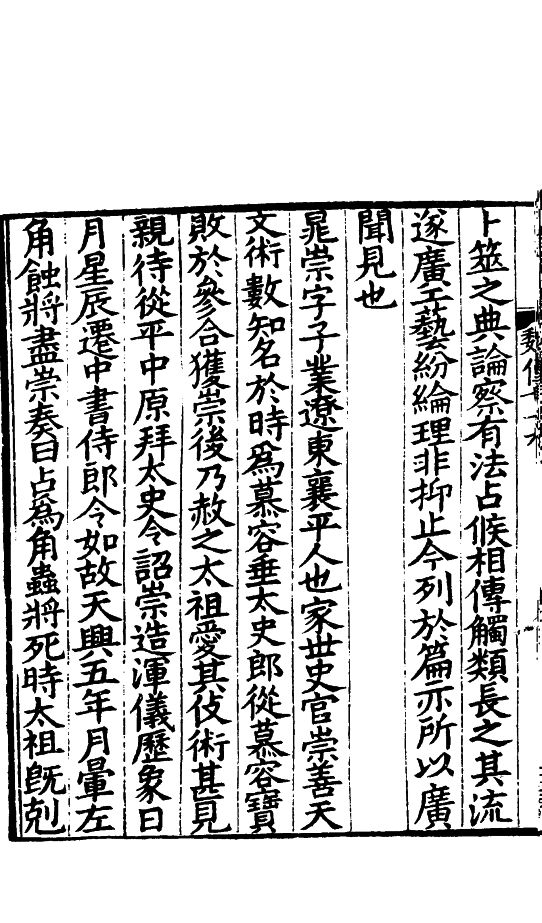 卜筮之典論察有法占候相傳觸類長之其流
遂廣工藝紛綸理非抑止今列於篇亦所以廣
聞見也
晁崇字子業遼東襄平人也家世史官崇善天
文術數知名於時為慕容垂太史郎從慕容寶
敗於參合獲崇後乃赦之太祖愛其伎術甚見
親待從平中原拜太史令詔崇造渾儀歷象日
月星辰遷中書侍郎令如故天興五年月暈左
角蝕將盡崇奏曰占為角蟲將死時太祖既剋